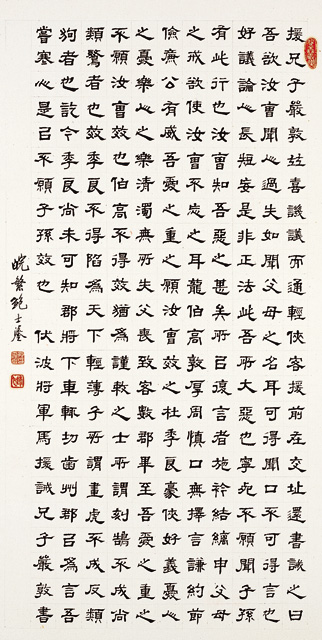 援兄子嚴敦竝喜譏議而通輕俠客援前在交址還書誡之曰
吾欲汝曹聞人過失如聞父母之名耳可得聞口不可得言也
好議論人長短妄是非正法此吾所大惡也寧死不願聞子孫
有此行也汝曹知吾惡之甚矣所以復言者施衿結縭申父母
之戒欲使汝曹不忘之耳龍伯高敦厚周慎口無擇言謙約節
儉廉公有威吾愛之重之願汝曹效之杜季良豪俠好義憂人
之憂樂人之樂清濁無所失父喪致客數郡畢至吾愛之重之
不願汝曹效也伯高不得效猶為謹敕之士所謂刻鵠不成尚
類鶩者也效季良不得陷為天下輕薄子所謂畫虎不成反類
狗者也訖今季良尚未可知郡將下車輒切齒州郡以為言吾
嘗寒心是以不願子孫效也 伏波將軍馬援誡兄子嚴敦書